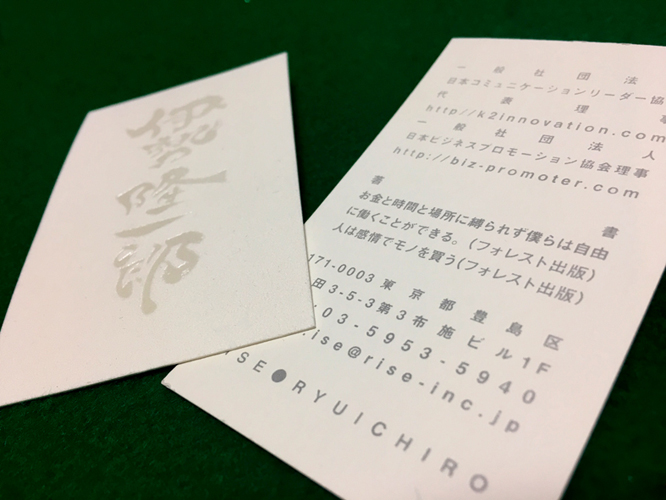 伊勢隆一郎
一般社団法
日本コミュニケーションリーダー協
代表理事
http//k2innovation.com
一般社団法人
日本ビジネスプロモーション協会理事
http://biz-promoter.com
著書
お金と時間と場所に縛られず僕らは自由
に働くことができる。(フォレスト出版)
人は感情でモノを買う(フォレスト出版)
171-0003東京都豊島区
田3-5-3第3布施ビル1F
03-5953-5940
.rise@rise-inc.jp
ISE●RYUICHIRO